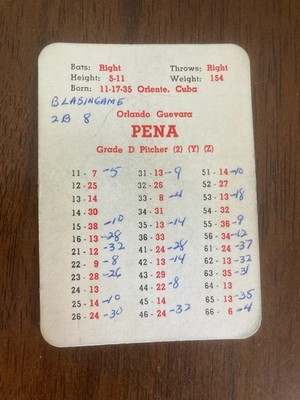 Bats: Right Throws: Right
Height: 5-11 Weight: 154
Born: 11-17-35 Oriente, Cuba
BLASINGAME
2B 8 Orlando Guevara
PENA
Grade D Pitcher (2) (Y) (Z)
11 - 7 -5 31 - 13 -9 51 - 14 -10
12 - 25 32 - 26 52 - 23
13 - 14 33 - 8 -4 53 - 13 -18
14 - 30 34 - 31 54 - 32
15 - 38 -10 35 - 14 -13 55 - 36 -9
16 - 13 -28 36 - 33 56 - 34 -12
21 - 12 -32 41 - 24 -28 61 - 24 -37
22 - 9 -8 42 - 13 -14 62 - 13 -32
23 - 28 -26 43 - 29 63 - 35 -31
24 - 13 44 - 22 -8 64 - 27
25 - 14 -10 45 - 14 65 - 13 -35
26 - 24 -30 46 - 24 -32 66 - 6 -4